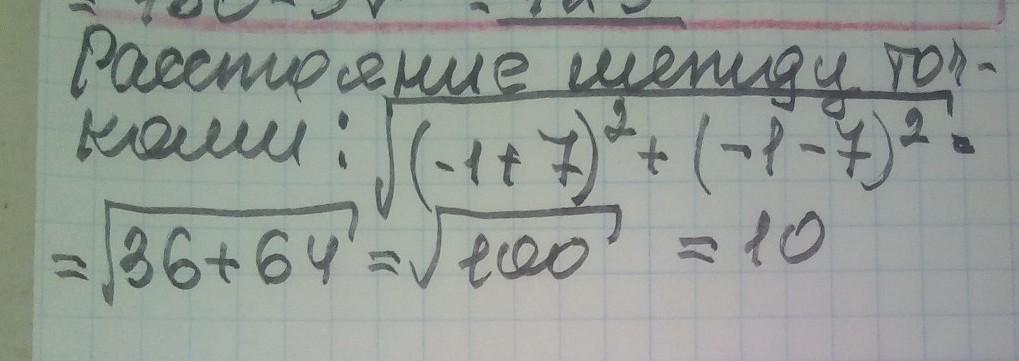 Расстояние между точ-
ками: √(-1+7)²+(-1-7)² =
=√36+64 = √100 = 10